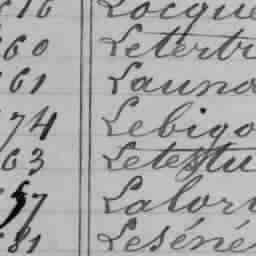 616 Locque
660 Letertr
661 Launo
674 Lebigo
663 Letestu
657 Lalor
681 Leséné